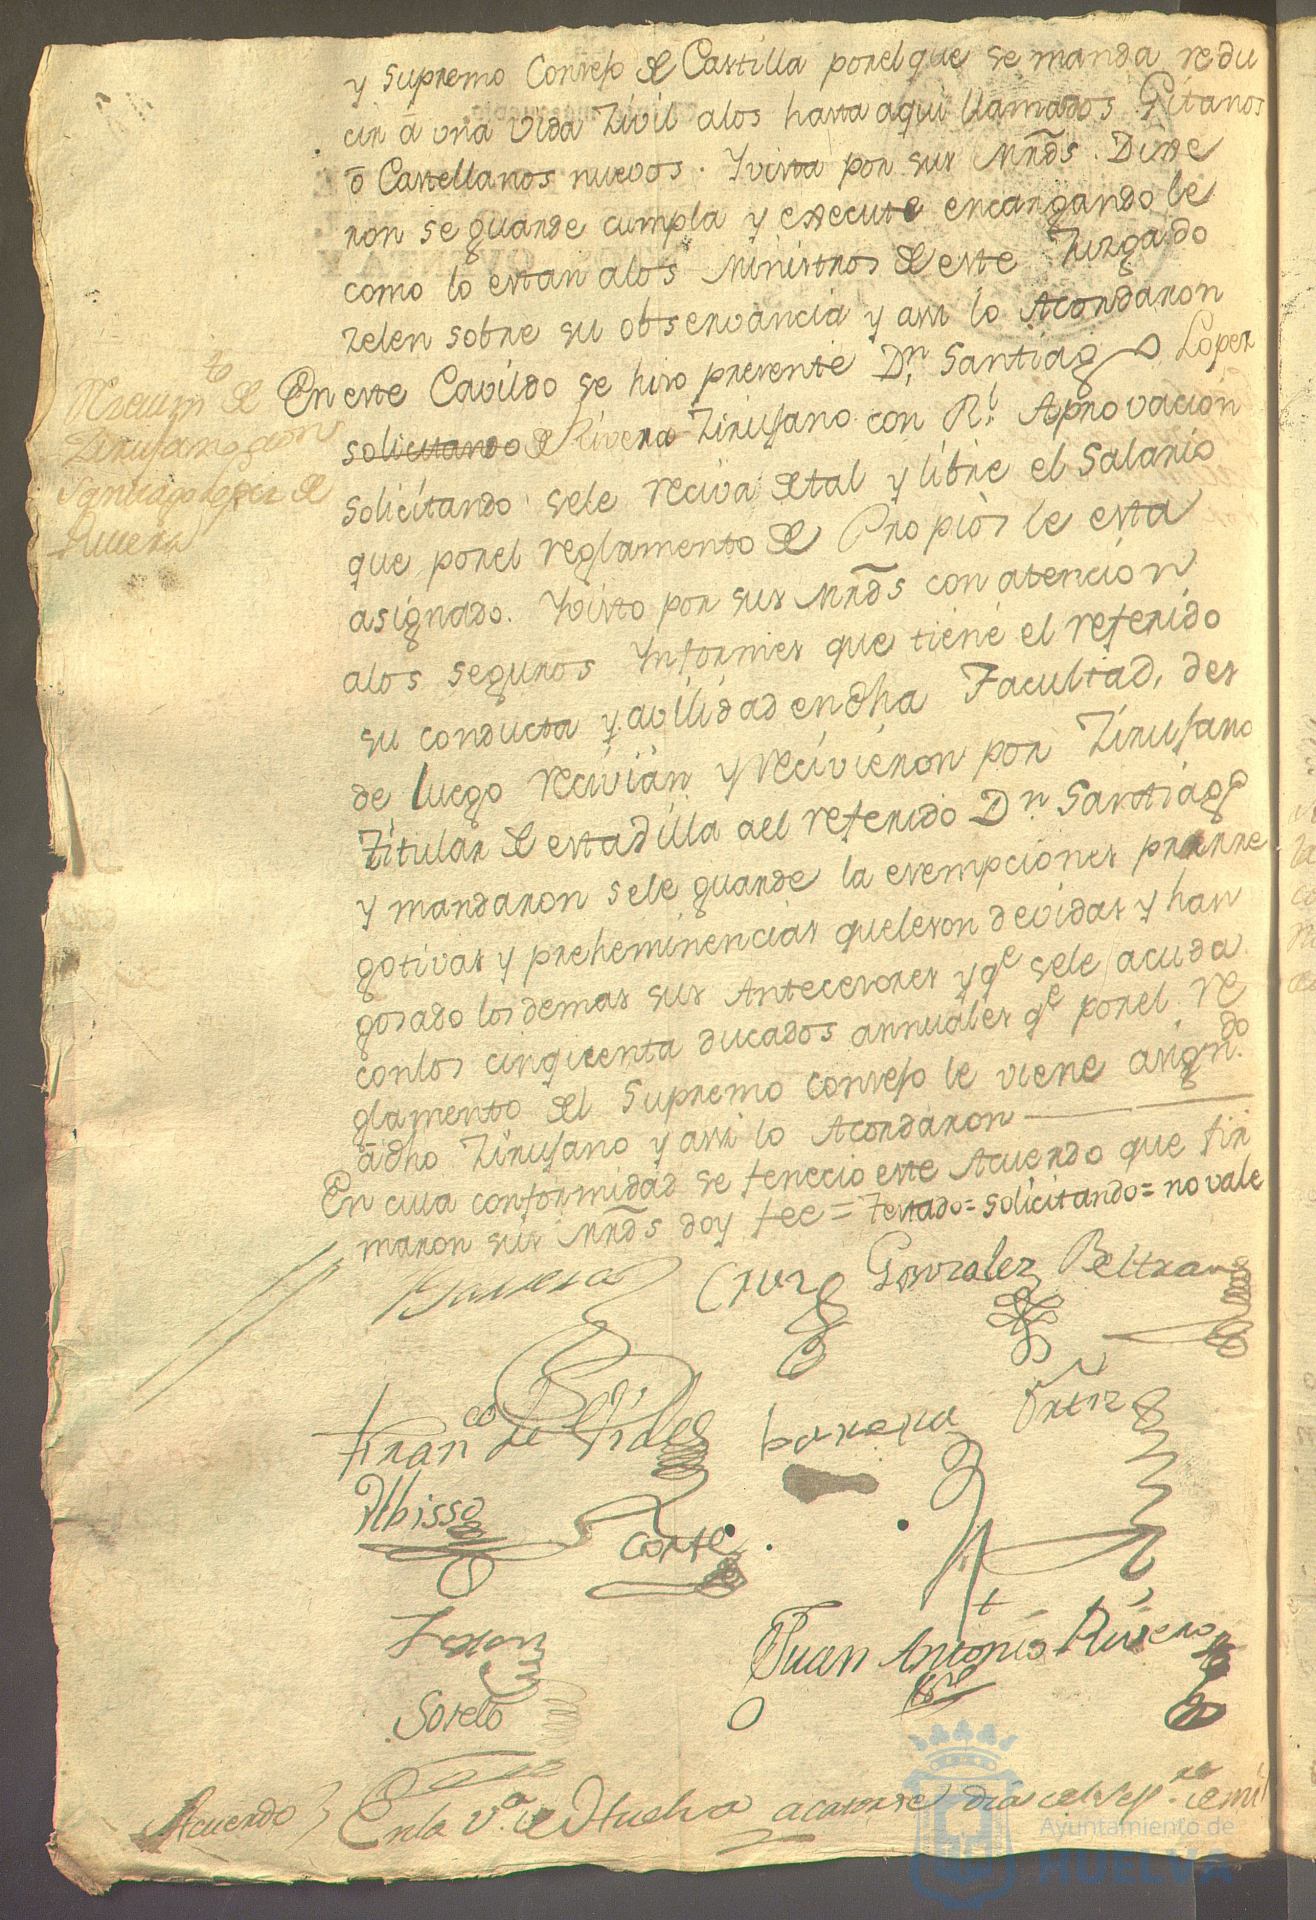 y supremo Consejo de Castilla porel que se manda redu
cir â una vida Zivil alos hasta aqui llamados Gitanos
ô Castellanos nuevos. Yvista por sus Mrds. Dixe
ron se guarde cumpla y execute encargandole
como lo estan alos Ministros de este Juzgado
zelen sobre su observancia y assi lo Acordaron
En este Cavildo se hizo presente Dn Santiago Lopez
solicitando de Rivera Zirujano con Rl. Aprovacion
solicitando sele reciva detal y libre el Salario
que porel reglamento de Propios le esta
asignado. Yvisto por sus Mrds con atencion
alos seguros Ynformes que tiene el referido
su conducta y avilidad endha Facultad, des
de luego recivian y recivieron por Zirujano
Titular de esta dilla ael referido Dn Santiago
y mandaron sele guarde la exempciones prerre
gotivas y preheminencias queleson devidas y han
gosado losdemas sus Antecesores y qe sele acuda
conlos cinqüenta ducados annuales qe porel re
glamento del Supremo Consejo le viene asigndo.
âdho Zirujano y assi lo Acordaron
En cuia conformidad se fenecio este Acuerdo que fir
maron sus Mrds doy fee = Testado= solicitando= no vale
Recivimto de
Zirujano a Dn
Santiago Lopez de
Rivera
Cruz Gonzalez Beltran
Franco de Fides Barrera Ortiz
Albisso Corte
Sotelo
Juan Antonio Rivero
Acuerdo
Enla Va. de Huelva acatorse dias del Sepre. de mil
Ayuntamiento de
HUELVA